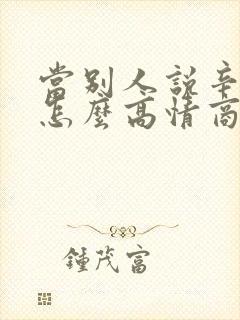 當別人說辛
怎麼高情商
鍾茂富